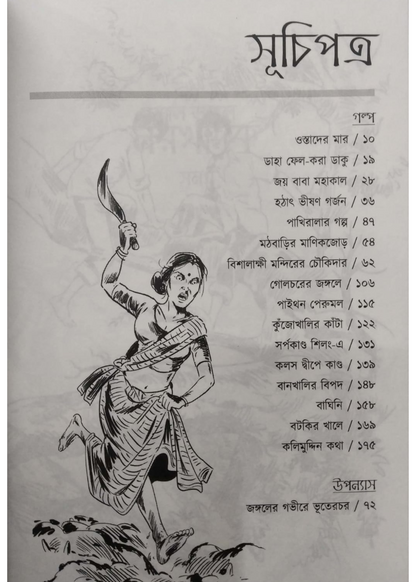 সূচিপত্র
গল্প
ওস্তাদের মার / ১০
ডাহা ফেল-করা ডাকু / ১৯
জয় বাবা মহাকাল / ২৮
হঠাৎ ভীষণ গর্জন / ৩৬
পাখিরালার গল্প / ৪৭
মঠবাড়ির মাণিকজোড় / ৫৪
বিশালাক্ষী মন্দিরের চৌকিদার / ৬২
গোলচরের জঙ্গলে / ১০৬
পাইথন পেরুমল / ১১৫
কুঁজোখালির কাঁটা / ১২২
সর্পকাণ্ড শিলং-এ / ১৩১
কলস দ্বীপে কাণ্ড / ১৩৯
বানখালির বিপদ / ১৪৮
বাঘিনি / ১৫৮
বটকির খালে / ১৬৯
কলিমুদ্দিন কথা / ১৭৫
উপন্যাস
জঙ্গলের গভীরে ভূতেরচর / ৭২